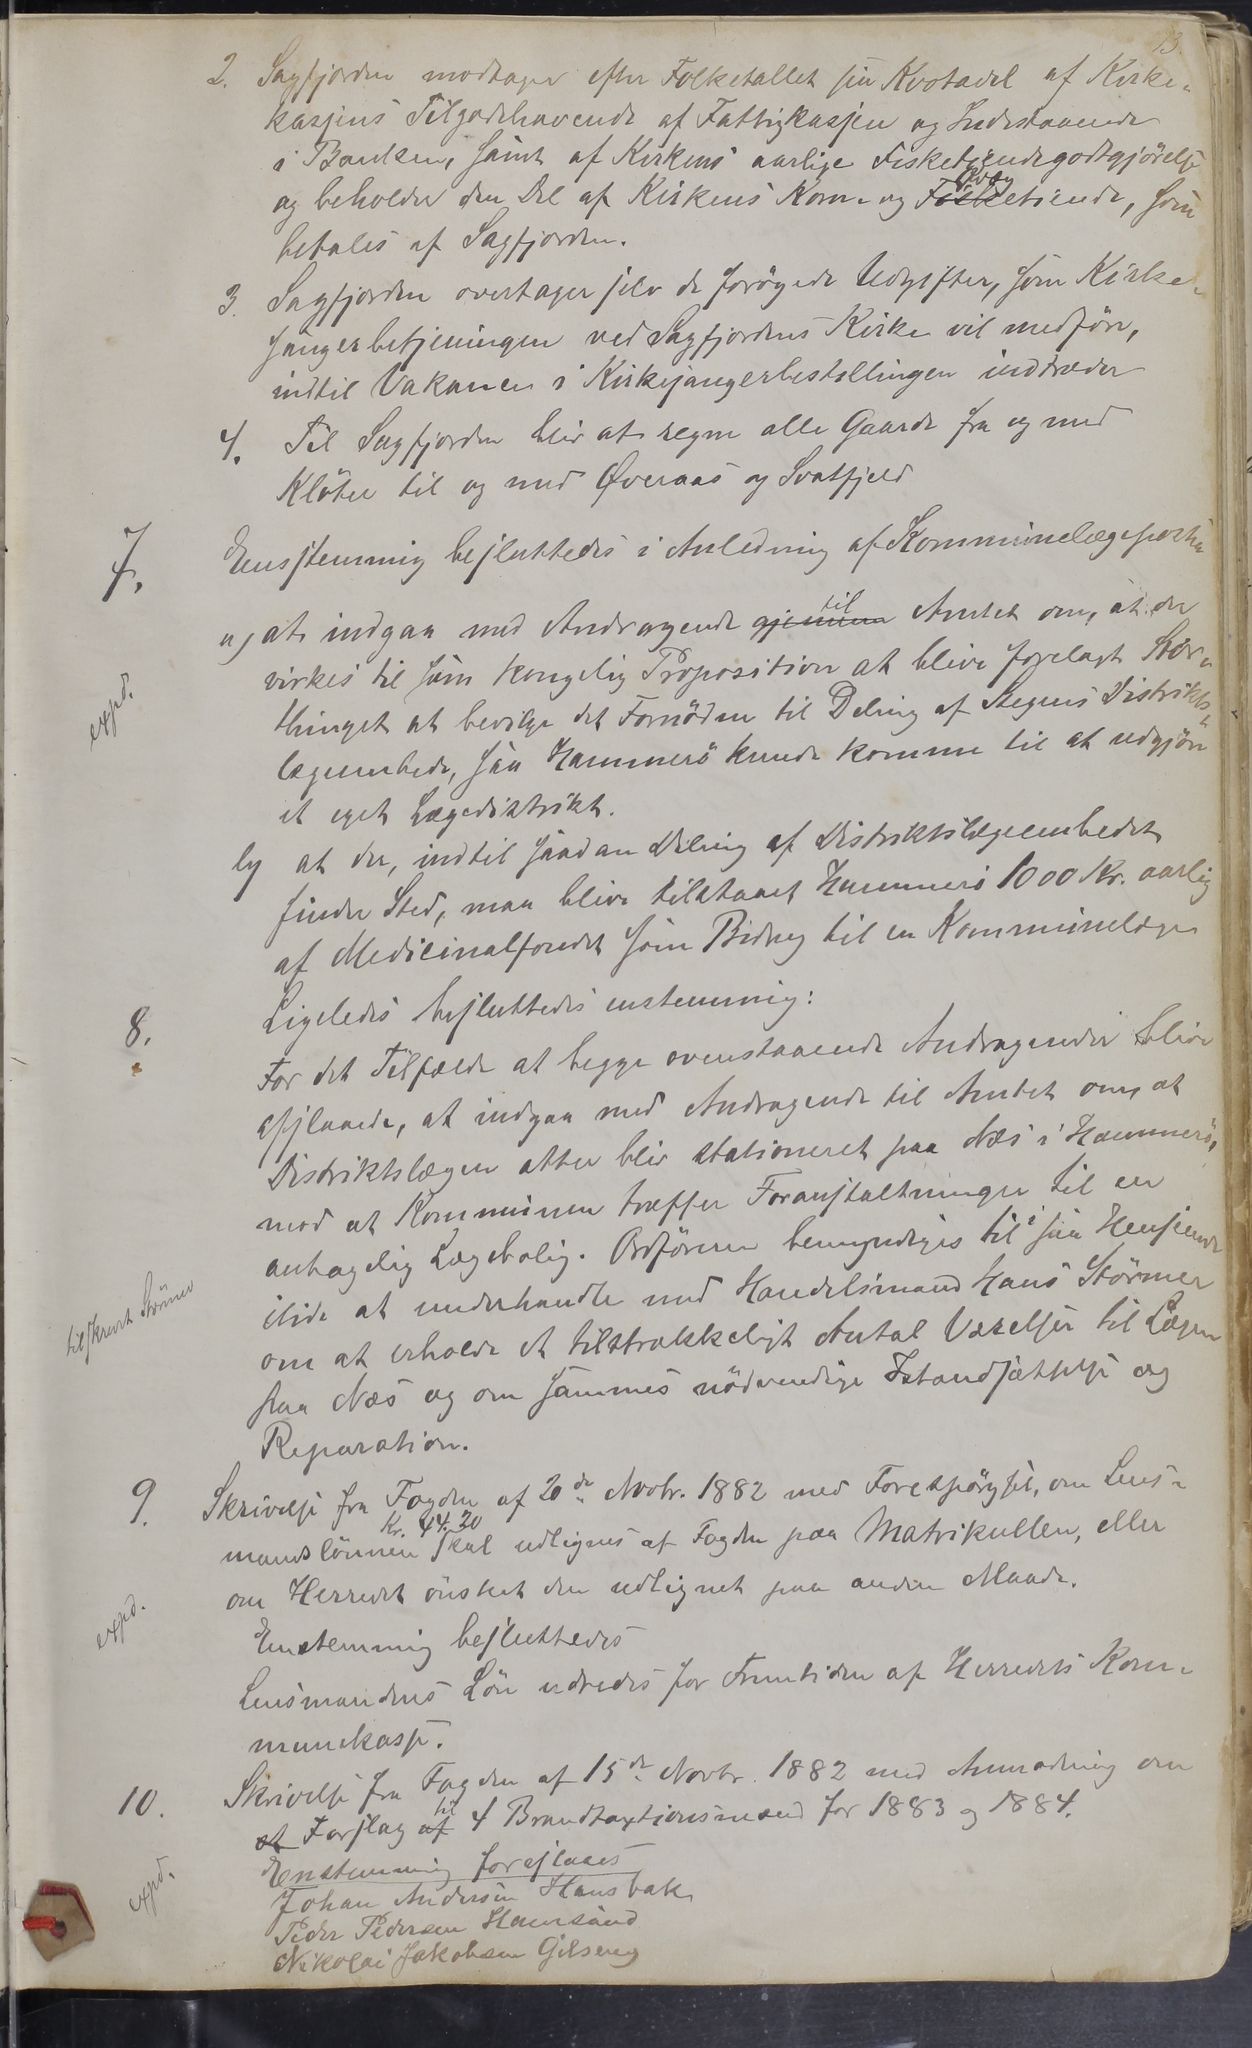 13.
2. Sagfjorden modtager efter Folketallet sin Kvotadel af Kirke-
kassens Tilgodehavende af Fattigkassen og Indestaaende
i Banken, samt af Kirkens aarlige Fisketiendegodtgjörelse
og beholder den Del af Kirkens Korn- og Fisketiende, som
betales af Sagfjorden.
3. Sagfjorden overtager selv de forögede Udgifter, som Kirke-
sangerbetjeningen ved Sagfjordens Kirke vil medföre,
indtil Vakance i Kirkesangerbestillingen indtræder
4. Til Sagfjorden blir at regne alle Gaarde fra og med
Klöter til og med Øveraas og Svatfjeld
7. Ensstemmig besluttedes i Anledning af Kommunelægeposten
a) at indgaa med Andragende gjennem til Amtet om, at der
virkes til som kongelig Proposition at blive forelagt Stor-
thinget at bevilge det Fornödne til Deling af Stegens Distrikts-
lægeembede, saa Hammerö kunde komme til at udgjöre
et eget Lægedistrikt.
expd.
b) at der, indtil saadan Deling af Distriktslægeembedet
finder Sted, maa blive tilstaaet Hammerö 1000 Kr. aarlig
af Medicinalfondet som Bidrag til en Kommunelæge
8. Ligeledes besluttedes enstemmig:
For det Tilfælde at begge ovenstaaende Andragender blive
afslaaede, at indgaa med Andragende til Amtet om, at
Distriktslægen atter blir stationeret paa Næs i Hammerö,
mod at Kommunen træffer Foranstaltninger til en
antagelig Lægebolig. Ordföreren bemyndiges til i saa Henseende
itide at underhandle med Handelsmand Hans Störmer
om at erholde et tilstrækkeligt Antal Værelser til Lægen
paa Næs og om sammes nödvendige Istandsættelse og
Reparation.
tilskrevet Störmer
9. Skrivelse fra Fogden af 20de Novbr. 1882 med Forespörgsel, om Lens-
mandslönnen Kr. 44.20 skal udlignes af Fogden paa Matrikullen, eller
om Herredet önsket den udlignet paa anden Maade.
expd.
Enstemmig besluttedes
Lensmandens Lön udredes for Fremtiden af Herredets Kom-
munekasse.
10. Skrivelse fra Fogden af 15de Novbr. 1882 med Anmodning om
at Forslag af til 4 Brandtaxtionsmænd for 1883 og 1884.
Enstemmig foreslaaes
expd.
Johan Andersen Hansbak
Peder Pedersen Hamsund
Nikolai Jakobsen Gilseng